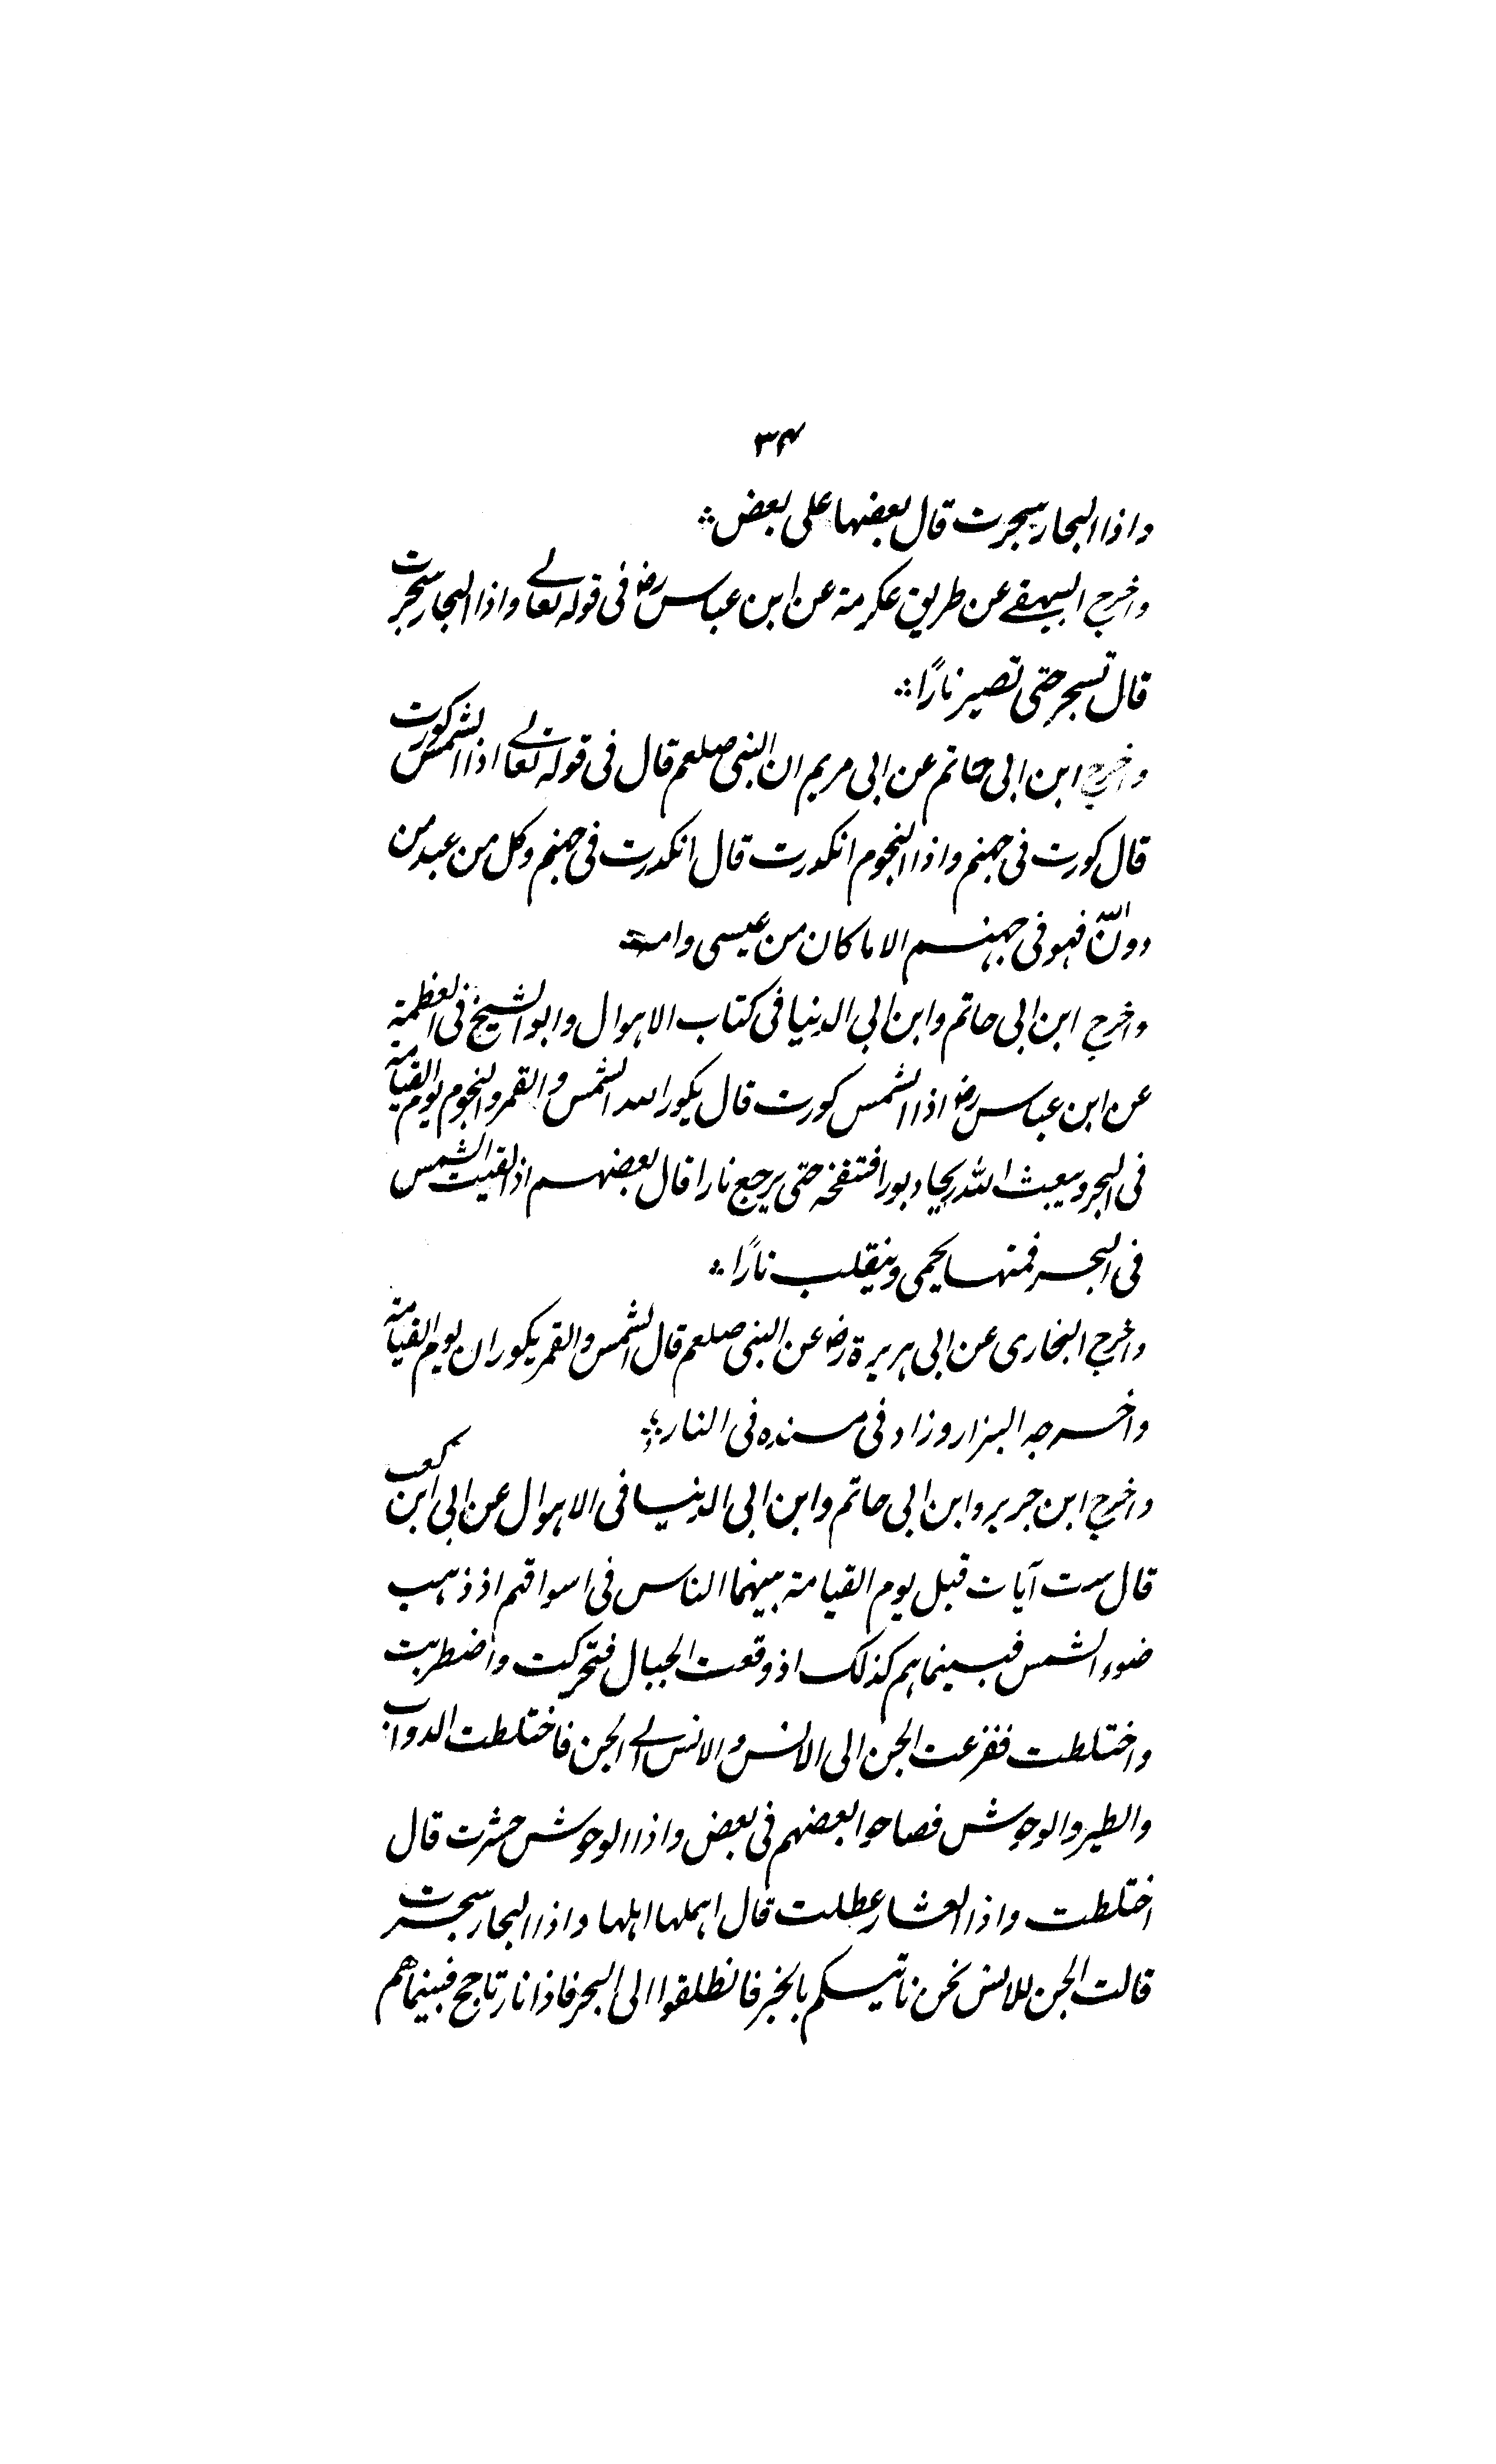 ۳۴
واذا البحار سجرت قال بعضها على بعض
واخرج البيهقے عن طريق عكرمة عن ابن عباس رض فى قوله تعالے واذا البحار سجرت
قال تسجر حتى تصير نارًا
واخرج ابن ابى حاتم عن ابى مريم ان النبى صلعم قال فى قوله تعالے اذا الشمس كورت
قال كورت فى جهنم واذا النجوم انكدرت قال انكدرت فى جهنم وكل من عبد من
دون الله فهو فى جهنم الا ما كان من عيسى وامه
واخرج ابن ابى حاتم وابن ابى الدنيا فى كتاب الاهوال وابو الشيخ فى العظمة
عن ابن عباس رض اذا الشمس كورت قال يكور الله الشمس والقمر والنجوم يوم القيامة
فى البحر ويبعث الله ريحا دبورا فتنفخه حتى يرجع نارا قال بعضهم اذ القيت الشمس
فى البحر فمنها يحمى وينقلب نارًا
واخرج البخارى عن ابى هريرة رض عن النبى صلعم قال الشمس والقمر يكوران يوم القيامة
واخرجه البزار وزاد فى مسنده فى النار
واخرج ابن جرير وابن ابى حاتم وابن ابى الدنيا فى الاهوال عن ابى ابن كعب
قال ست آيات قبل يوم القيامة بينما الناس فى اسواقهم اذ ذهب
ضوء الشمس فبينما هم كذلك اذ وقعت الجبال فتحركت واضطربت
واختلطت ففزعت الجن الى الانس والانس الے الجن فاختلطت الدواب
والطير والوحوش فصاحوا بعضهم فى بعض واذا الوحوش حشرت قال
اختلطت واذا العشار عطلت قال اهملها اهلها واذا البحار سجرت
قالت الجن للانس نحن ناتيكم بالخبر فانطلقوا الى البحر فاذا نار تاجج فبينماهم